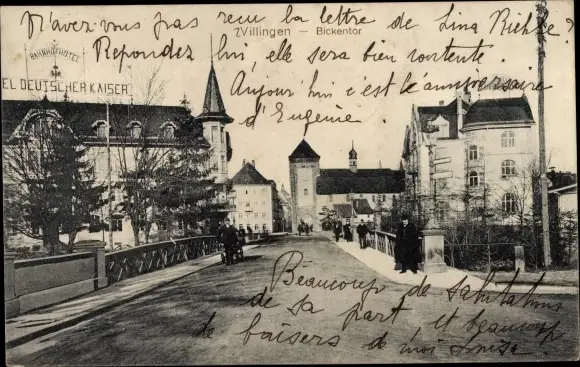 N'avez-vous pas reçu la lettre de Lina Riehle ?
Villingen — Bickentor
Repondez lui, elle sera bien contente.
Aujour'hui c'est l'anniversaire
d'Eugénie.
BAHNHOFHOTEL
EL DEUTSCHER KAISER
Beaucoup de salutations
de sa part, et beaucoup
de baisers de moi Louise